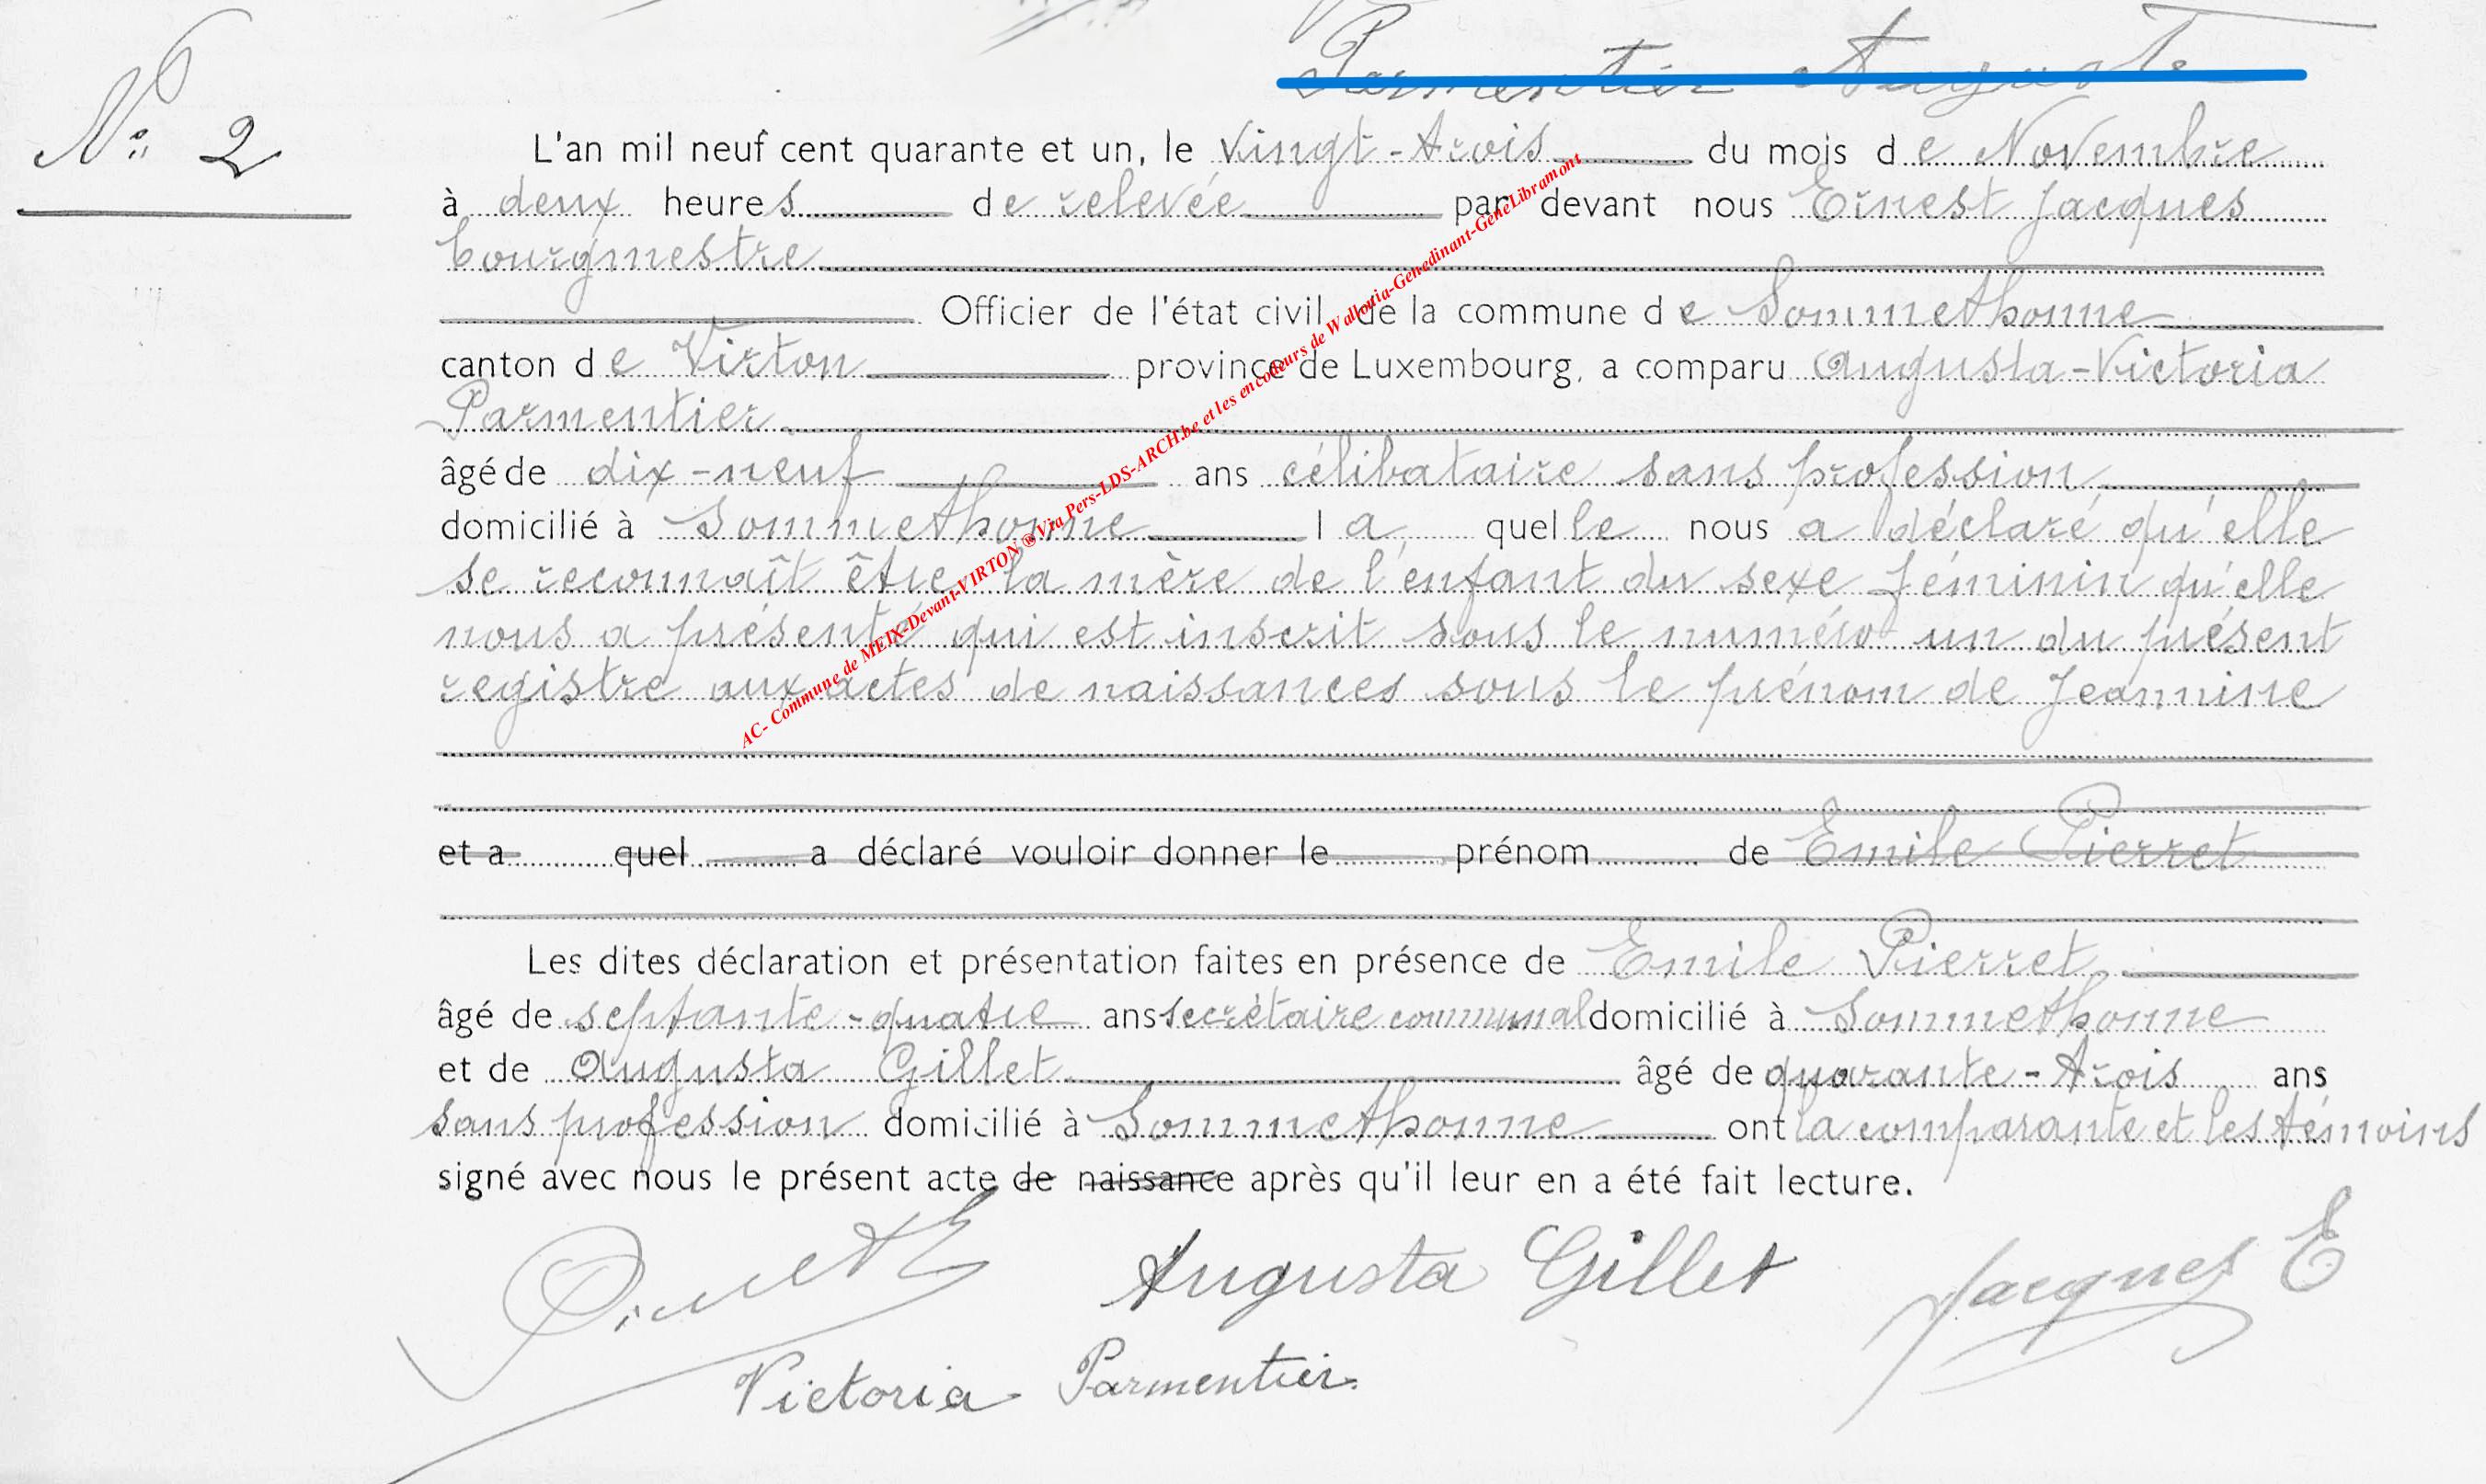 Parmentier Auguste
Nº 2
L'an mil neuf cent quarante et un, le vingt-trois du mois de Novembre
à deux heures de relevée par devant nous Ernest Jacques
bourgmestre
Officier de l'état civil de la commune de Sommethonne
canton de Virton province de Luxembourg, a comparu Augusta-Victoria
Parmentier
âgé de dix-neuf ans célibataire sans profession
domicilié à Sommethonne laquelle nous a déclaré qu'elle
se reconnaît être la mère de l'enfant du sexe féminin qu'elle
nous a présenté qui est inscrit sous le numéro un du présent
registre aux actes de naissances sous le prénom de Jeannine
et a quel a déclaré vouloir donner le prénom de Emile Pierret
Les dites déclaration et présentation faites en présence de Emile Pierret
âgé de septante-quatre ans secrétaire communal domicilié à Sommethonne
et de Augusta Gillet âgé de quarante-trois ans
sans profession domicilié à Sommethonne ont la comparante et les témoins
signé avec nous le présent acte de naissance après qu'il leur en a été fait lecture.
Augusta Gillet Jacques E
Victoria Parmentier.
AC- Commune de MEIX-Devant-VIRTON ® Via Pers-LDS-ARCH.be et les encodeurs de Wallonia-Genedinant-GeneLibramont